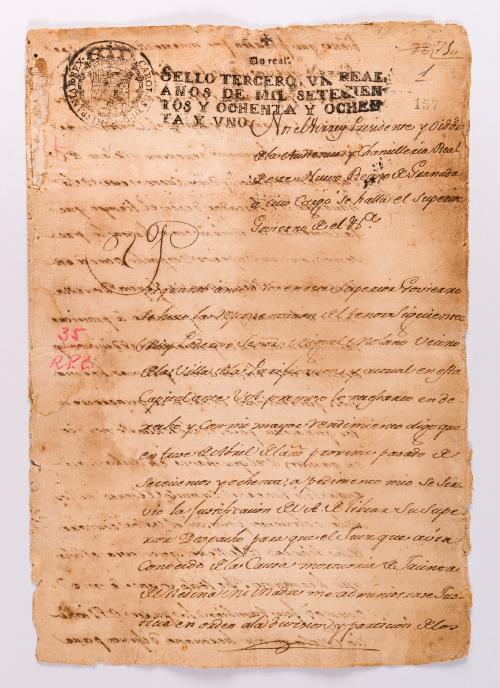 Un real.
SELLO TERCERO, VN REAL,
AÑOS DE MIL SETECIEN-
TOS Y OCHENTA Y OCHEN-
TA Y VNO.
71,
1
157
Nos el Virrey Presidente y Oidores
de la Audiencia y Chancilleria Real
de este Nuevo Reyno de Granada
a cuio Cargo se halla el Superior
Govierno de el &ca.
Por quanto ante este Superior Govierno
se hizo la representacion del tenor siguiente
Muy Poderoso Señor: Miguel Molano Vecino
de la Villa de la Purificacion y actual en esta
Capital ante V.A. premiso lo necesario en de
recho y con mi mayor rendimiento digo que
en trese de Abril del año proximo pasado de
setecientos y ochenta, a pedimento mio se sir
vio la justificacion de V.A. de librar su Supe
rior Despacho para que el Juez que avia
conocido de la Causa mortuoria de Jacinta
de Medina me administrase Jus
ticia en orden a la division y particion de los
35
R.P.C.